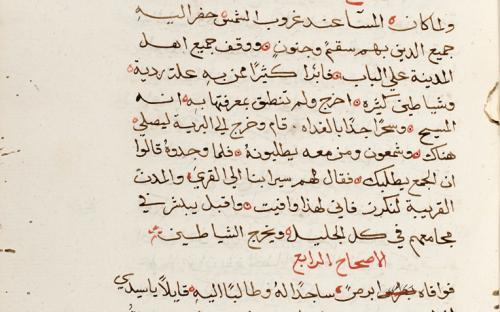 ولما كان المسا عند غروب الشمس حضر اليه
جميع الذين بهم سقم وجنون ووقف جميع اهل
المدينة علي الباب فابرا كثيرًا ممن به علت ردية
وشياطين كثيره اخرج ولم تنطق بمعرفتها به انه
المسيح وسحرًا جدًا بالغداه قام وخرج الي البرية ليصلي
هناك وشمعون ومن معه يطلبونه فلما وجدوه قالوا
ان الجمع يطلبك فقال لهم سيرا بنا الي القري والمدن
القريبة لنكرز فاني لهذا وافيت واقبل يبشر في
مجامعهم في كل الجليل ويخرج الشياطين
الاصحاح الرابع
فوافاه ابرص ساجدًا له وطالبًا اليه قايلًا يا سيدي